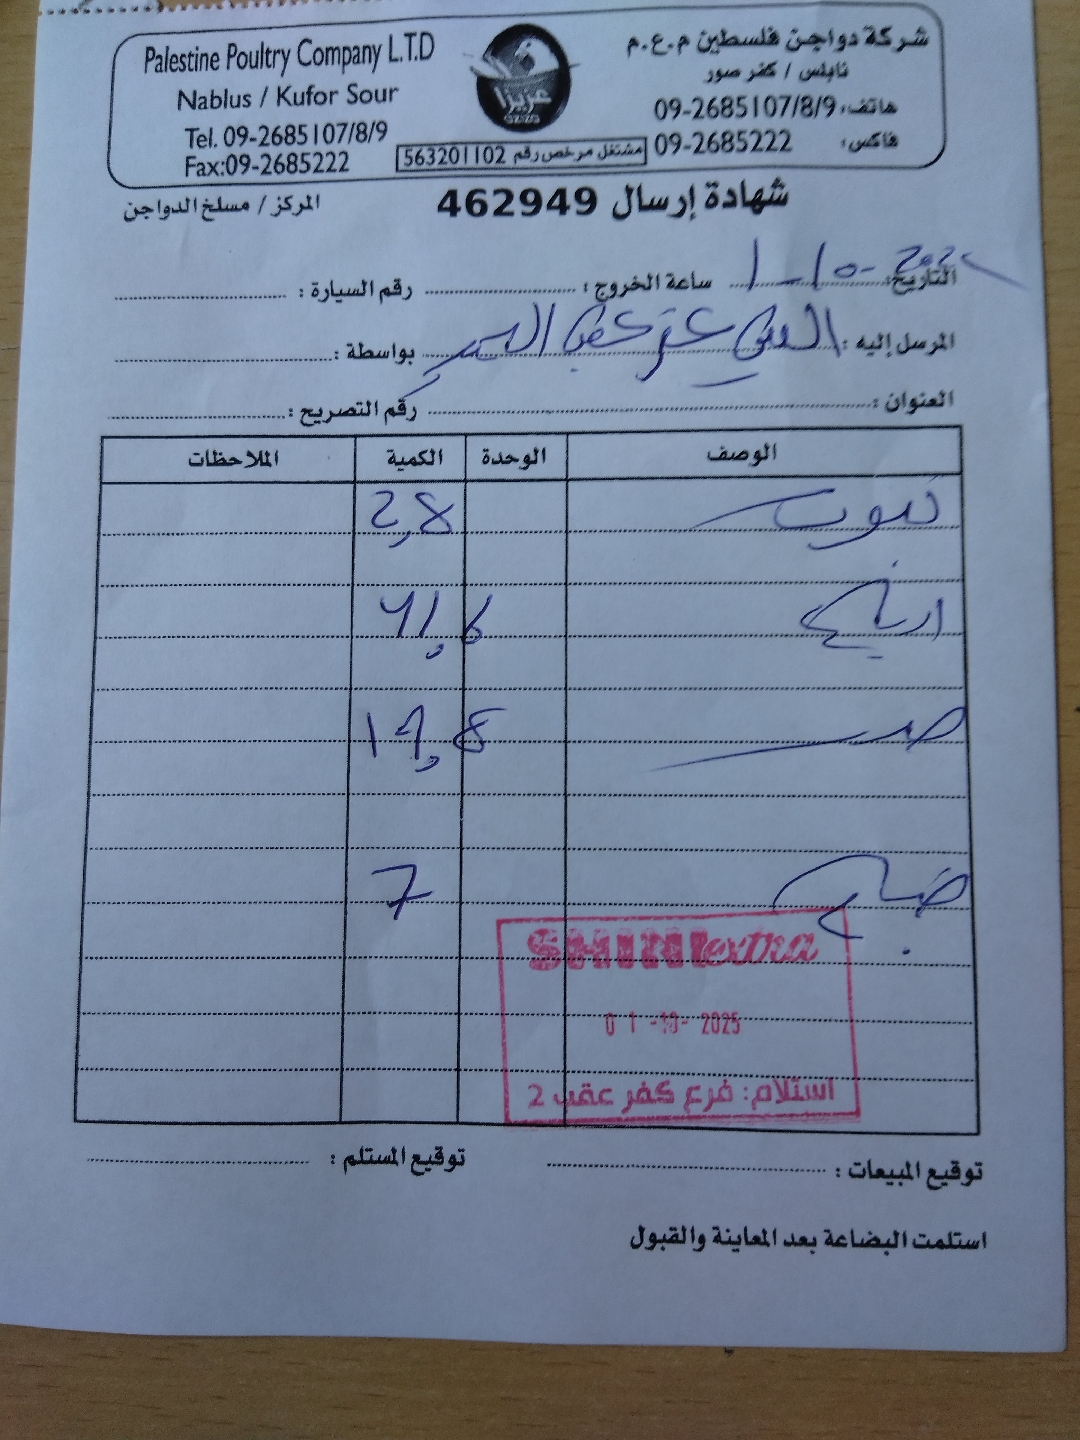 Palestine Poultry Company L.T.D
Nablus / Kufor Sour
Tel. 09-2685107/8/9
Fax:09-2685222
عزيزا
AZIZA
شركة دواجن فلسطين م.ع.م
نابلس / كفر صور
هاتف: 09-2685107/8/9
فاكس: 09-2685222
مشتغل مرخص رقم 563201102
شهادة إرسال 462949
المركز / مسلخ الدواجن
التاريخ: 1-10-2025 ساعة الخروج: رقم السيارة:
المرسل إليه: بواسطة:
العنوان: رقم التصريح:
الوصف الوحدة الكمية الملاحظات
2,8
41,6
19,8
7
SHINI extra
01-10-2025
استلام: فرع كفر عقب 2
توقيع المبيعات: توقيع المستلم:
استلمت البضاعة بعد المعاينة والقبول